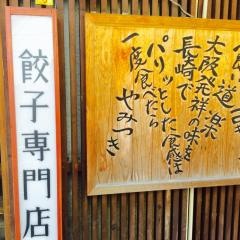 い道楽
大阪発祥の味を
長崎で
パリッとした食感は
一度食べたら
やみつき
餃子専門店